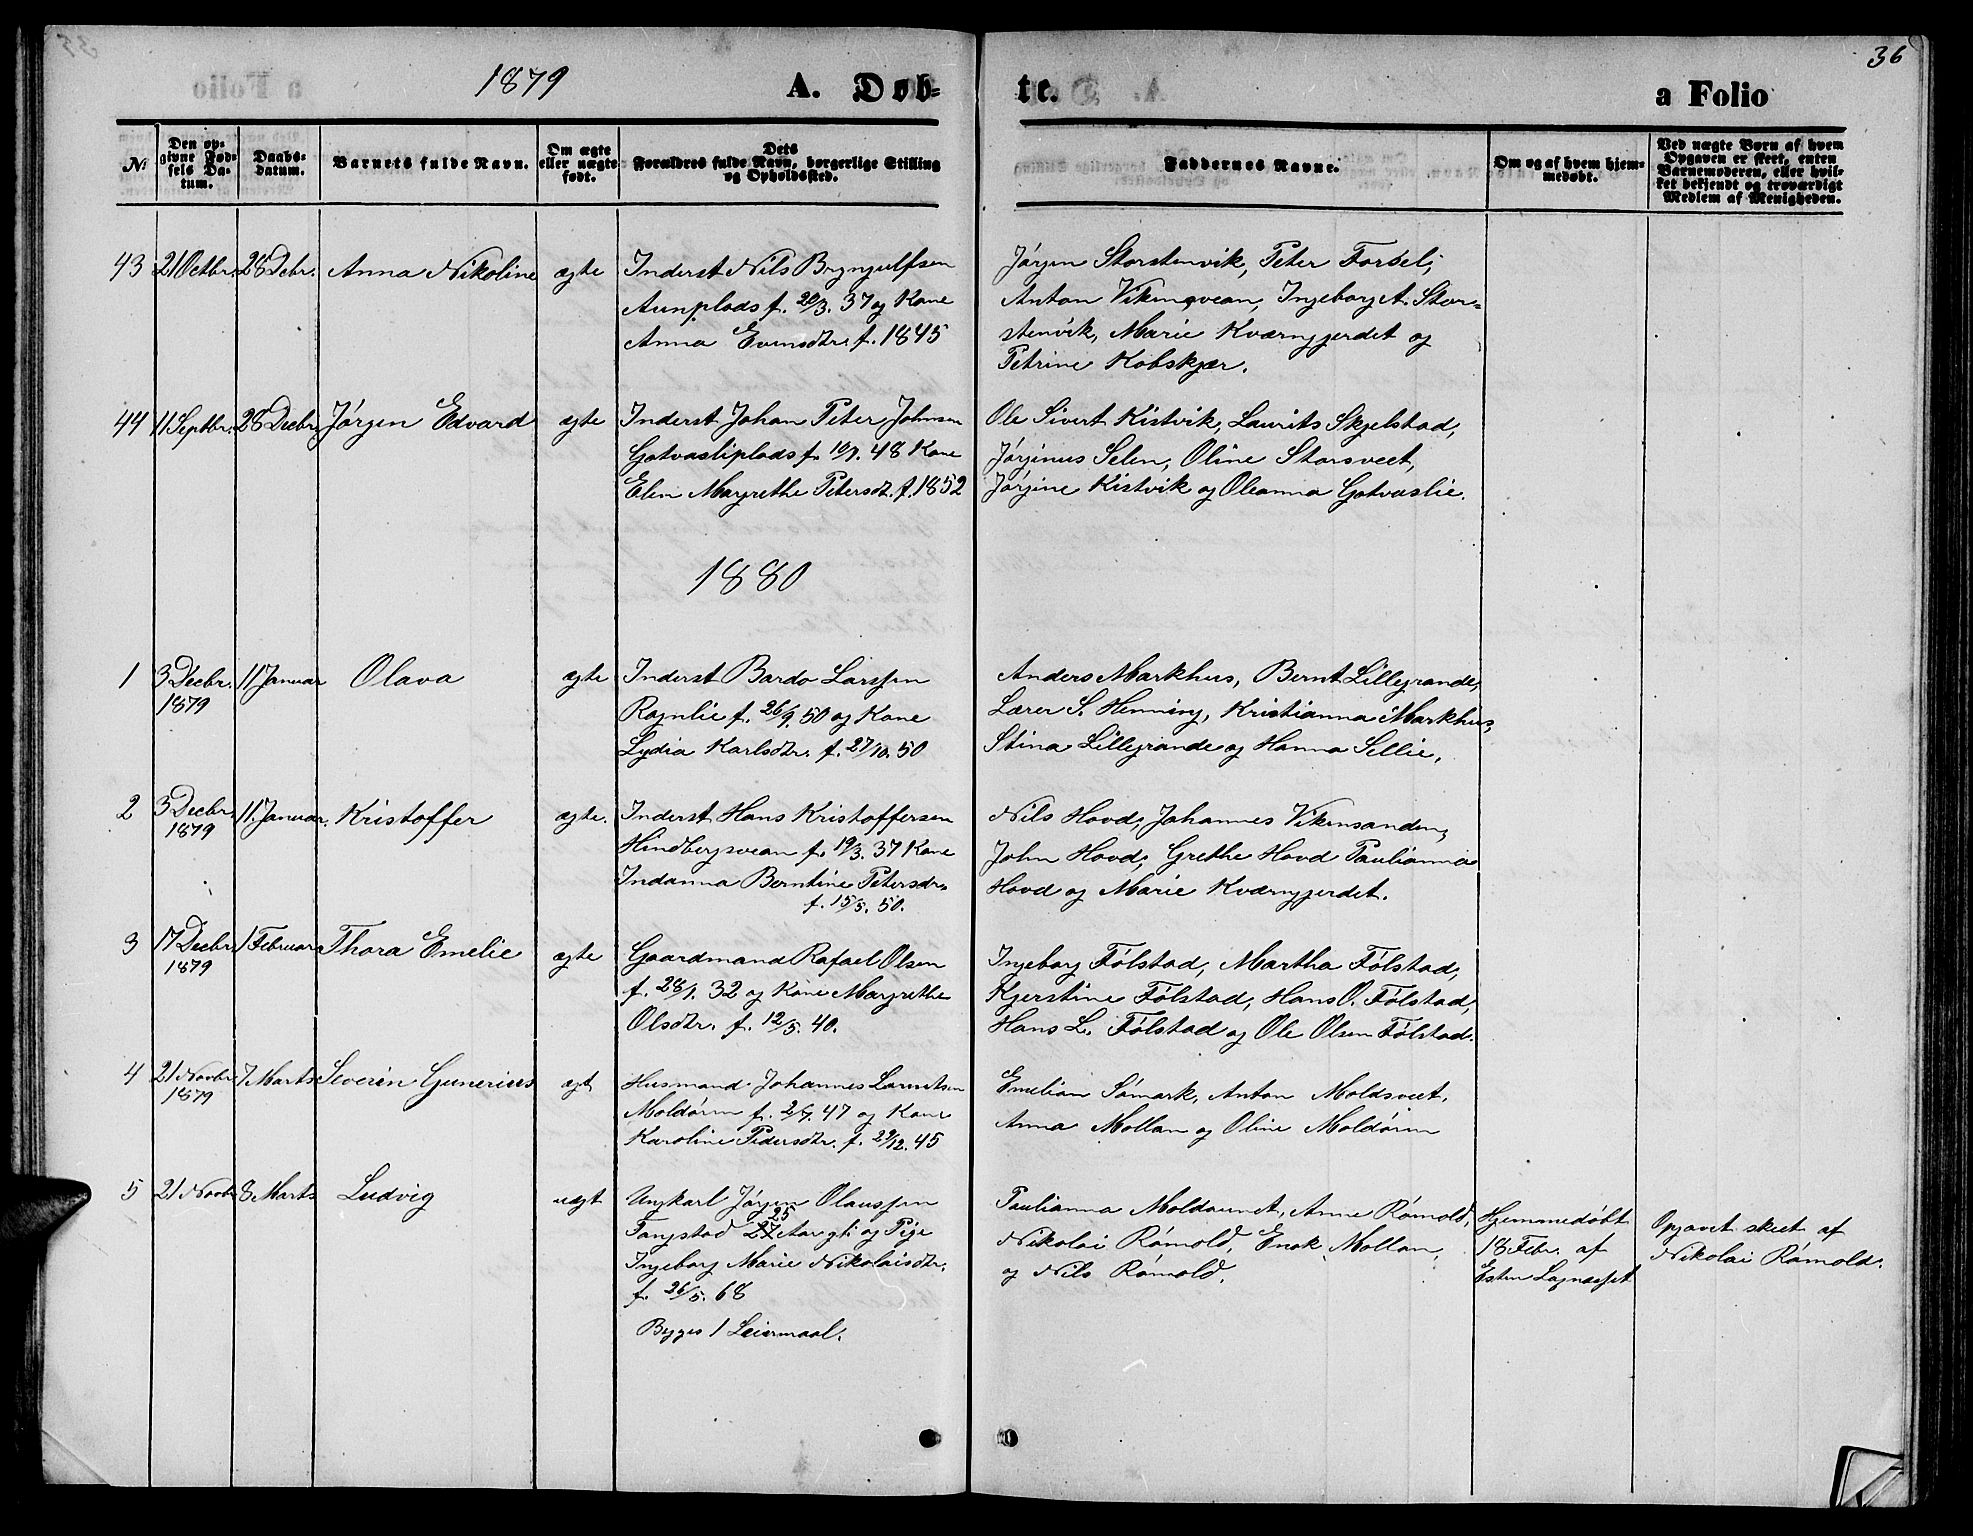 1879
A. Døb-
te.
a Folio
36
No
Den op-
givne Fød-
sels Da-
tum.
Daabs-
datum.
Barnets fulde Navn.
Om ægte
eller uægte
født.
Dets
Forældres fulde Navn, borgerlige Stilling
og Opholdssted.
Faddernes Navne.
Om og af hvem hjem-
medøbt.
Ved uægte Børn af hvem
Opgaven er skeet, enten
Barnemoderen, eller hvil-
ket bekjendt og troværdigt
Medlem af Menigheden.
43 21 Octbr. 28 Debr. Anna Nikoline ægte
Inderst Nils Bryngulfsen
Aunplads f. 20/3. 37 og Kone
Anna Evensdtr. f. 1845
Jørgen Storstenvik, Peter Forbel,
Anton Vikensvean, Ingeborg A. Stor-
stenvik, Marie Kværngjerdet og
Petrine Kobskjær.
44 11 Septbr. 28 Decbr. Jørgen Edvard ægte
Inderst Johan Peter Johnsen
Gotvasliplads f. 10/1. 48 Kone
Elen Margrethe Petersdt. f. 1852
Ole Sivert Kistvik, Laurits Skjelstad,
Jørginus Selen, Oline Storsveet,
Jørgine Kistvik og Oleanna Gotvaslie.
1880
1 3 Decbr. 1879 11 Januar Olava ægte
Inderst Bardo Larssen
Ragnlie f. 26/9. 50 og Kone
Lydia Karlsdtr. f. 27/10. 50
Anders Markhus, Bernt Lillegrande,
Lærer S. Henning, Kristianna Markhus,
Stina Lillegrande og Hanna Sellie.
2 3 Decbr. 1879 11. Januar. Kristoffer ægte.
Inderst Hans Kristoffersen
Hindbergsvean f. 19/3. 37 Kone
Indanna Berntine Petersdr.
f. 15/5. 50.
Nils Hovd, Johannes Vikensanden,
John Hovd, Grethe Hovd Paulianna
Hovd og Marie Kværngjerdet.
3 17 Decbr. 1879 1 Februar Thora Emelie ægte
Gaardmand Rafael Olsen
f. 28/1. 32 og Kone Margrethe
Olsdtr. f. 12/5. 40.
Ingeborg Følstad, Martha Følstad,
Kjerstine Følstad, Hans O. Følstad,
Hans L. Følstad og Ole Olsen Følstad.
4 21 Novbr 1879 7 Marts Severin Gunerius ægt
Husmand Johannes Lauritsen
Moldøren f. 2/9. 47 og Kone
Karoline Pedersdtr. f. 29/12. 45
Emelian Sømark, Anton Moldsveet,
Anna Mollan og Oline Moldøren
5 21 Novbr 8 Marts Ludvig uægt
Ungkarl Jørgen Olaussen
25
Fangstad 27 Aar gl. og Pige
Ingeborg Marie Nikolaisdtr.
f. 26/5. 68
Begges 1 Leiermaal.
Paulianna Moldaunet, Anne Rømold,
Nikolai Rømold, Enok Mollan,
og Nils Rømold.
Hjemmedøbt
18 Febr. af
Esten
Opgavet skeet af
Nikolai Rømold.